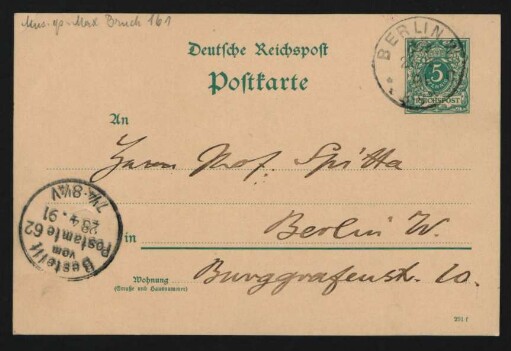 Mus. ep. Max Bruch 161
Deutsche Reichspost
Postkarte
BERLIN W
5
REICHSPOST
An
Herrn Prof. Spitta
Berlin W.
in
Burggrafenstr. 10.
Wohnung
(Straße und Hausnummer)
Bestellt
vom
Postamte 62
29.4.91
7¼-8¼V
291 f